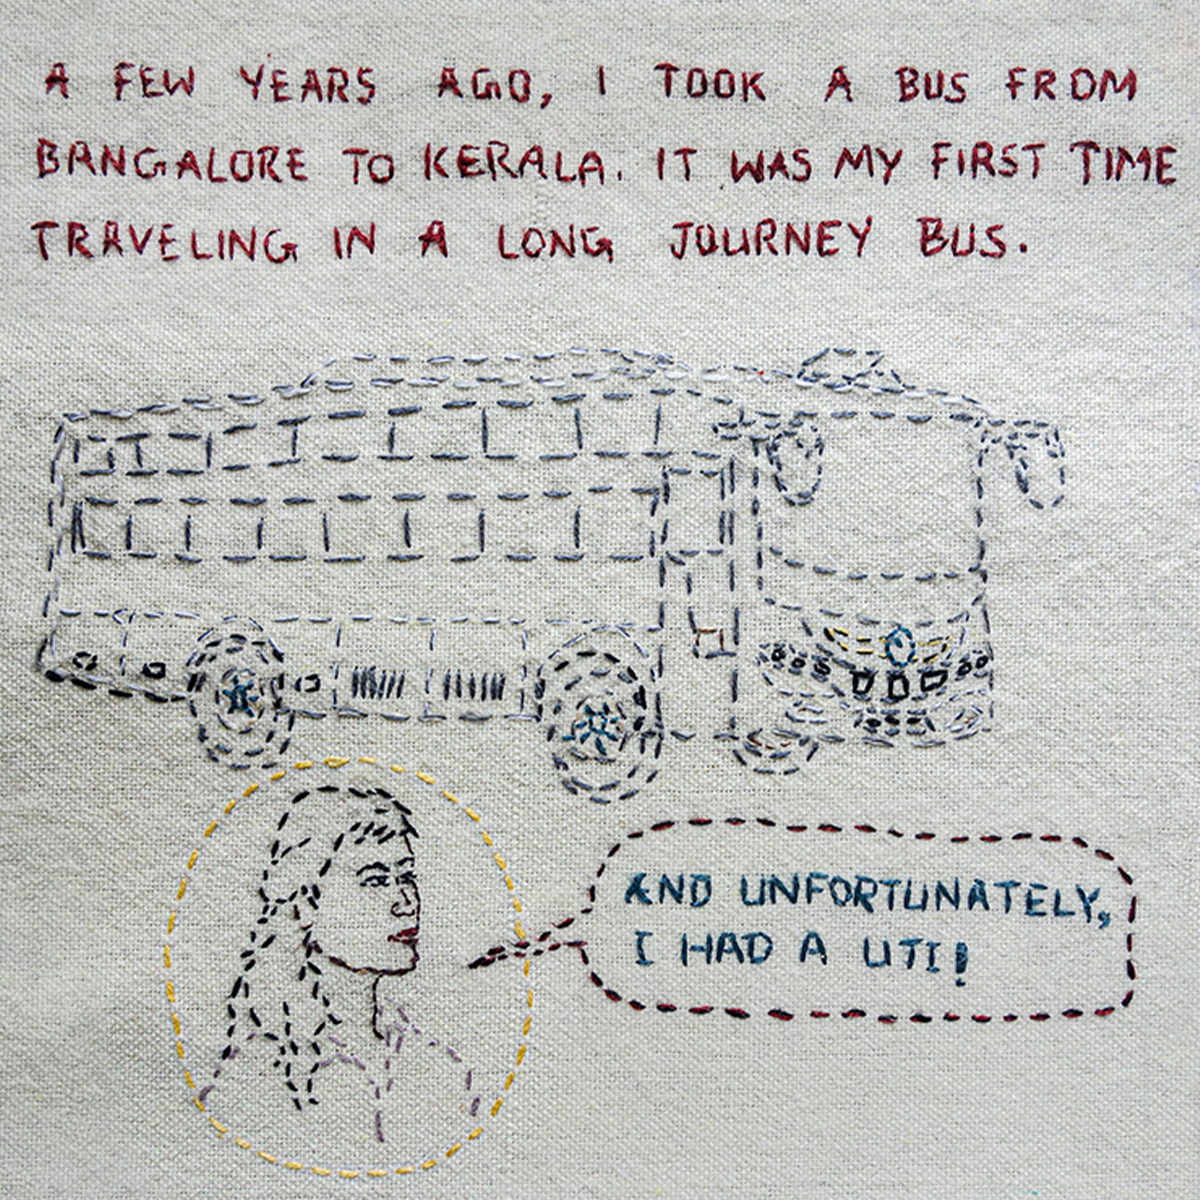 A FEW YEARS AGO, I TOOK A BUS FROM
BANGALORE TO KERALA. IT WAS MY FIRST TIME
TRAVELING IN A LONG JOURNEY BUS.
AND UNFORTUNATELY,
I HAD A UTI!